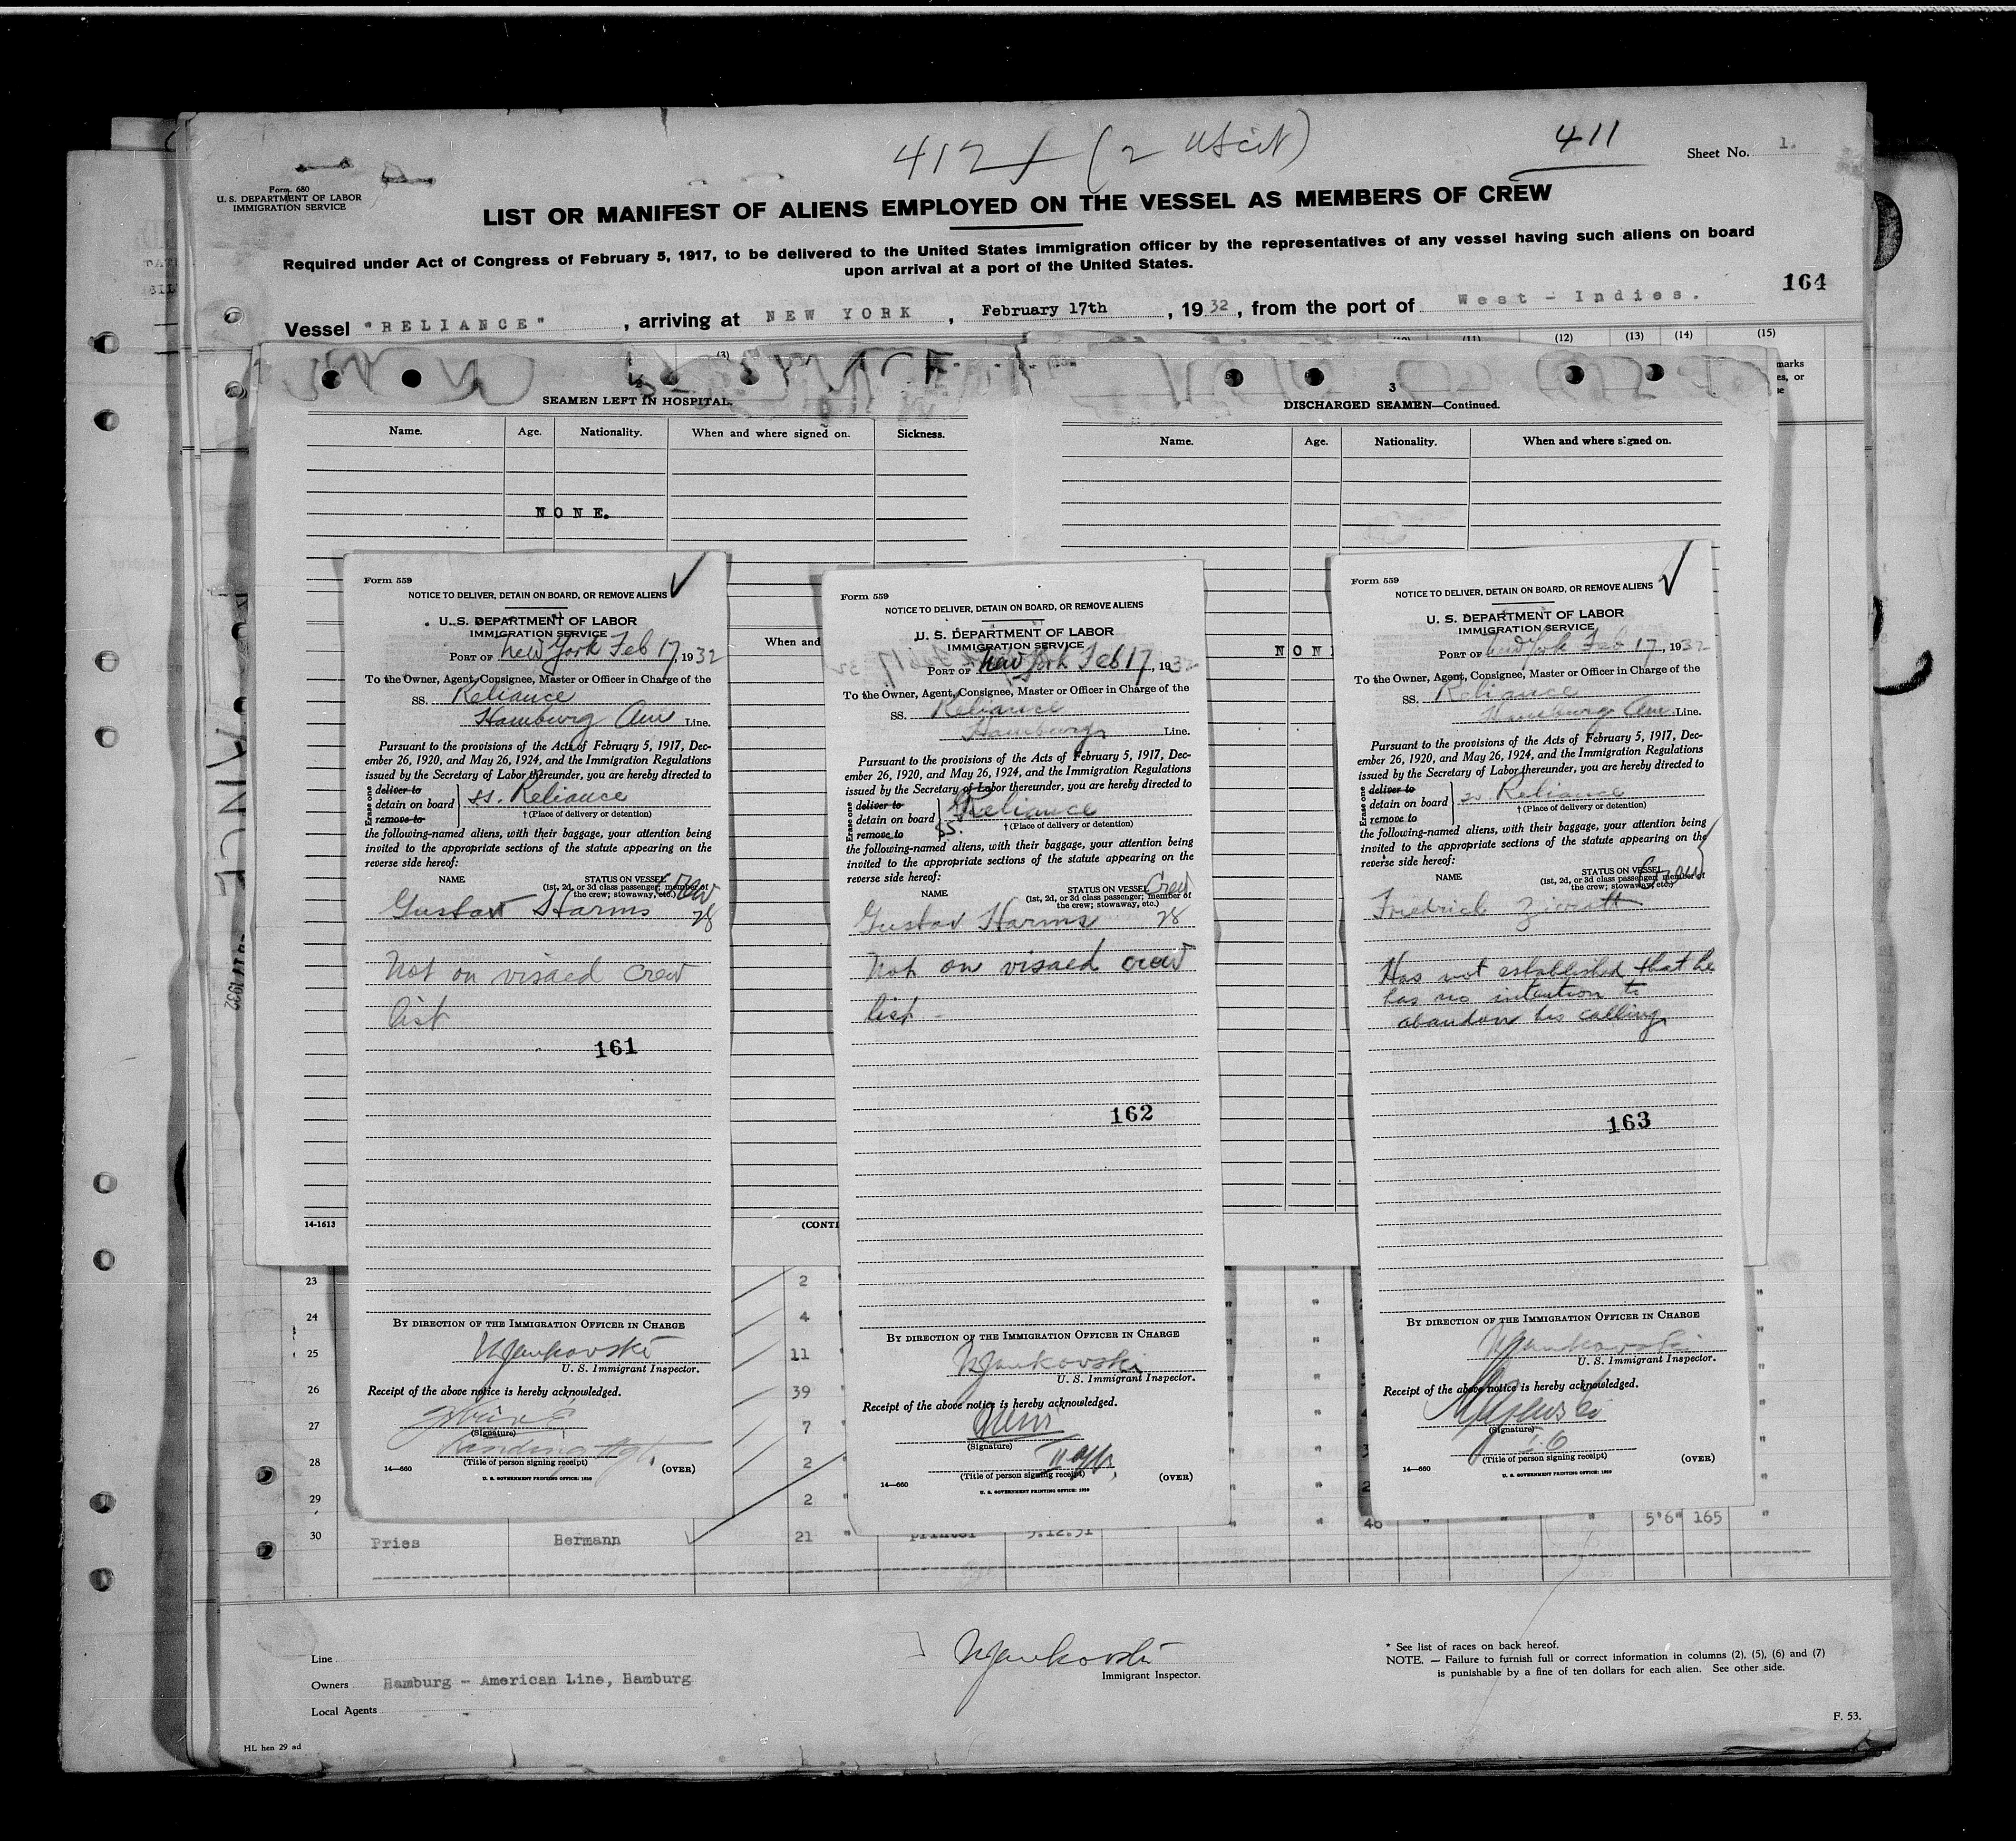 412 (2 US cit)
411
Sheet No. 1.
Form 680
U. S. DEPARTMENT OF LABOR
IMMIGRATION SERVICE
LIST OR MANIFEST OF ALIENS EMPLOYED ON THE VESSEL AS MEMBERS OF CREW
Required under Act of Congress of February 5, 1917, to be delivered to the United States immigration officer by the representatives of any vessel having such aliens on board
upon arrival at a port of the United States.
164
Vessel "RELIANCE", arriving at NEW YORK, February 17th, 1932, from the port of West - Indies.
(3) (11) (12) (13) (14) (15)
SEAMEN LEFT IN HOSPITAL.
Name. Age. Nationality. When and where signed on. Sickness.
NONE.
3
DISCHARGED SEAMEN—Continued.
Name. Age. Nationality. When and where signed on.
When and
NON
Form 559
NOTICE TO DELIVER, DETAIN ON BOARD, OR REMOVE ALIENS
U. S. DEPARTMENT OF LABOR
IMMIGRATION SERVICE
PORT OF New York Feb 17, 1932
To the Owner, Agent, Consignee, Master or Officer in Charge of the
SS. Reliance
Hamburg Am Line.
Pursuant to the provisions of the Acts of February 5, 1917, Dec-
ember 26, 1920, and May 26, 1924, and the Immigration Regulations
issued by the Secretary of Labor thereunder, you are hereby directed to
Erase one
deliver to
detain on board
remove to
ss. Reliance
† (Place of delivery or detention)
the following-named aliens, with their baggage, your attention being
invited to the appropriate sections of the statute appearing on the
reverse side hereof:
NAME
STATUS ON VESSEL
(1st, 2d, or 3d class passenger; member of
the crew; stowaway, etc.)
Crew
Gustav Harms 28
Not on visaed crew
list
161
BY DIRECTION OF THE IMMIGRATION OFFICER IN CHARGE
N Jankovski
U. S. Immigrant Inspector.
Receipt of the above notice is hereby acknowledged.
(Signature)
Landing Agt.
(Title of person signing receipt)
14—660
(OVER)
U. S. GOVERNMENT PRINTING OFFICE:
Form 559
NOTICE TO DELIVER, DETAIN ON BOARD, OR REMOVE ALIENS
U. S. DEPARTMENT OF LABOR
IMMIGRATION SERVICE
PORT OF New York Feb 17, 1932
To the Owner, Agent, Consignee, Master or Officer in Charge of the
SS. Reliance
Hamburg Line.
Pursuant to the provisions of the Acts of February 5, 1917, Dec-
ember 26, 1920, and May 26, 1924, and the Immigration Regulations
issued by the Secretary of Labor thereunder, you are hereby directed to
Erase one
deliver to
detain on board
remove to
SS. Reliance
† (Place of delivery or detention)
the following-named aliens, with their baggage, your attention being
invited to the appropriate sections of the statute appearing on the
reverse side hereof:
NAME
STATUS ON VESSEL
(1st, 2d, or 3d class passenger; member of
the crew; stowaway, etc.)
Crew
Gustav Harms 28
Not on visaed crew
list -
162
BY DIRECTION OF THE IMMIGRATION OFFICER IN CHARGE
N Jankovski
U. S. Immigrant Inspector.
Receipt of the above notice is hereby acknowledged.
(Signature)
(Title of person signing receipt)
14—660
(OVER)
U. S. GOVERNMENT PRINTING OFFICE:
Form 559
NOTICE TO DELIVER, DETAIN ON BOARD, OR REMOVE ALIENS
U. S. DEPARTMENT OF LABOR
IMMIGRATION SERVICE
PORT OF New York Feb 17, 1932
To the Owner, Agent, Consignee, Master or Officer in Charge of the
SS. Reliance
Hamburg Am Line.
Pursuant to the provisions of the Acts of February 5, 1917, Dec-
ember 26, 1920, and May 26, 1924, and the Immigration Regulations
issued by the Secretary of Labor thereunder, you are hereby directed to
Erase one
deliver to
detain on board
remove to
ss Reliance
† (Place of delivery or detention)
the following-named aliens, with their baggage, your attention being
invited to the appropriate sections of the statute appearing on the
reverse side hereof:
NAME
STATUS ON VESSEL
(1st, 2d, or 3d class passenger; member of
the crew; stowaway, etc.)
Crew
Friedrich
Has not established that he
has no intention to
abandon his calling
163
BY DIRECTION OF THE IMMIGRATION OFFICER IN CHARGE
N Jankovski
U. S. Immigrant Inspector.
Receipt of the above notice is hereby acknowledged.
(Signature)
(Title of person signing receipt)
14—660
(OVER)
U. S. GOVERNMENT PRINTING OFFICE:
14-1613
(CONTI
23 2
24 4
25 11
26 39
27 7
28 2
29 2
30 Pries Hermann 21 " printer 5.12.31 " " 46 " " 5'6" 165 "
Line
Owners Hamburg - American Line, Hamburg
Local Agents
N Jankovski
Immigrant Inspector.
* See list of races on back hereof.
NOTE. — Failure to furnish full or correct information in columns (2), (5), (6) and (7)
is punishable by a fine of ten dollars for each alien. See other side.
F. 53.
HL hen 29 ad